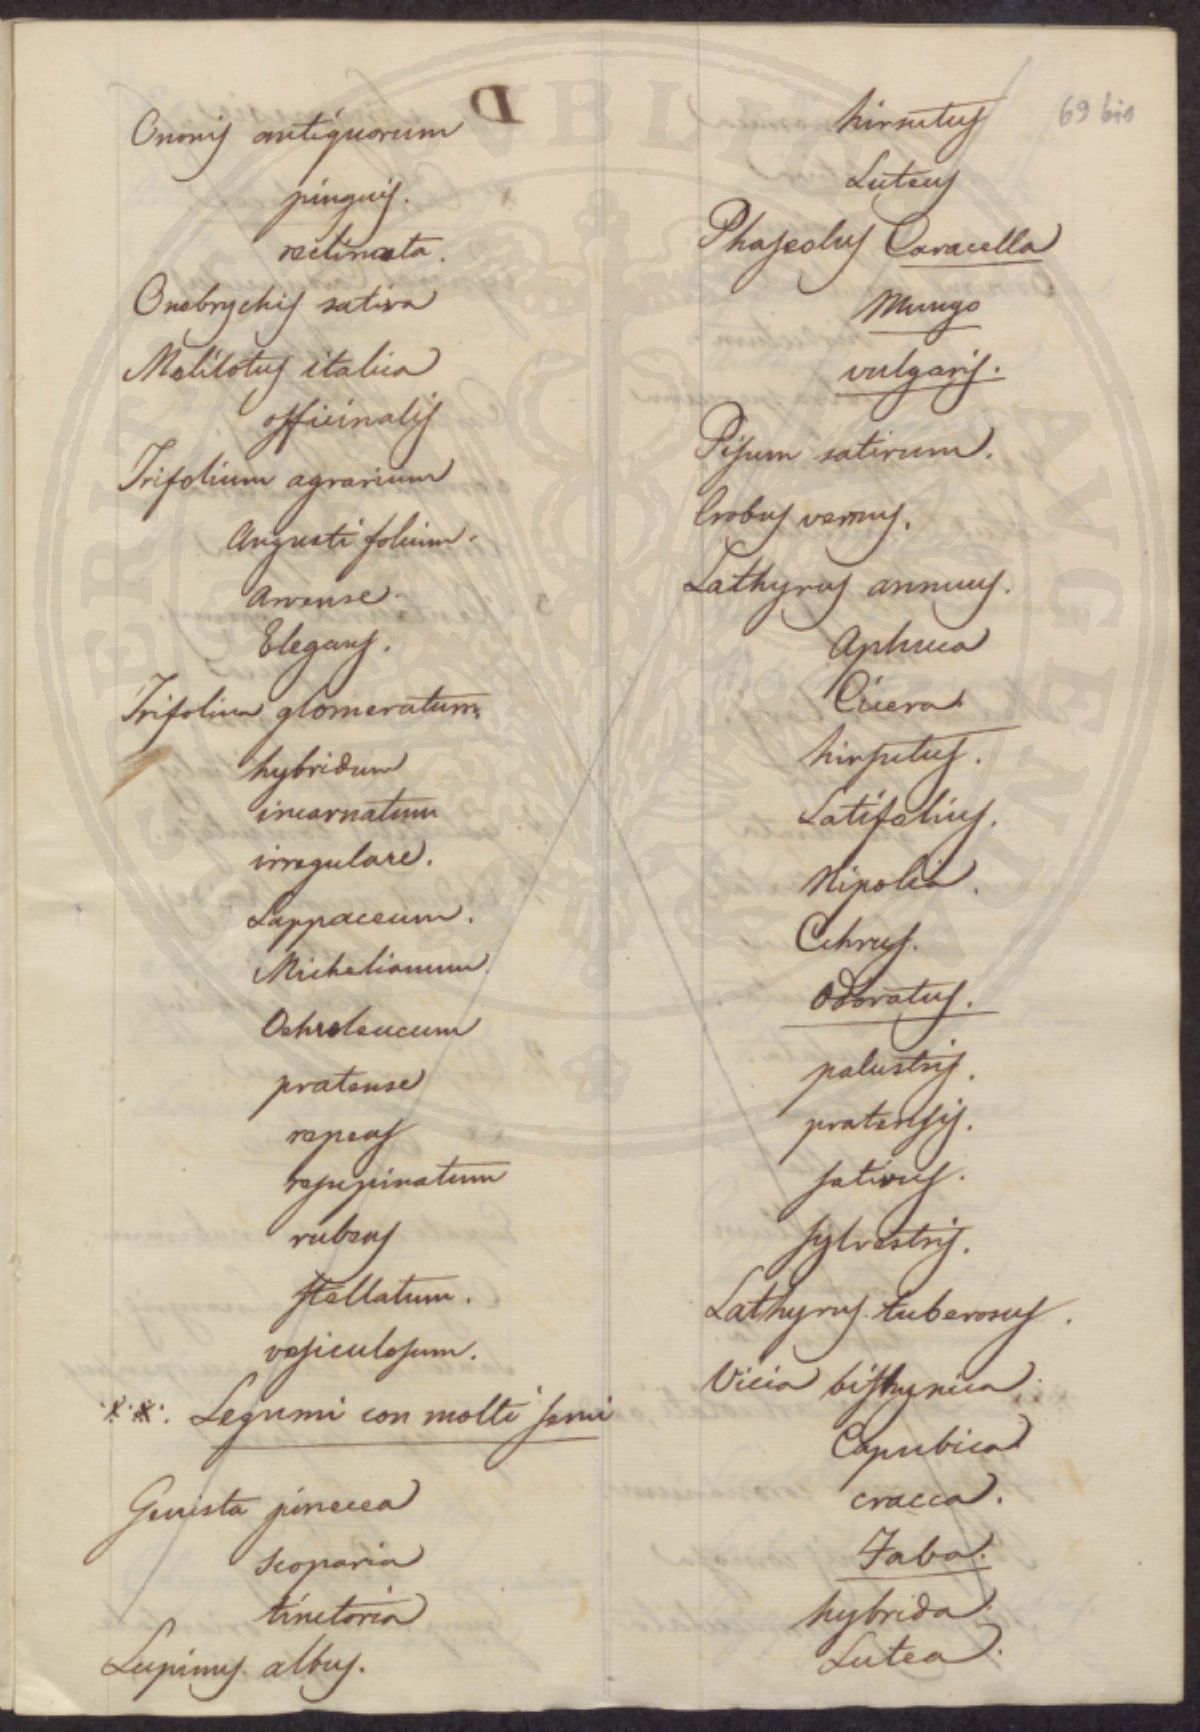 D
69 bis
Ononis antiquorum
pinguis.
reclinata.
Onobrychis sativa
Melilotus italica
officinalis
Trifolium agrarium
Angusti folium.
Arvense.
Elegans.
Trifolium glomeratum
hybridum
incarnatum
irregulare.
Lappaceum.
Michelianum
Ochroleucum
pratense
repens
resupinatum
rubens
stellatum.
vesiculosum.
Legumi con molti semi
Genista
scoparia
tinctoria
Lupinus albus.
hirsutus
Luteus
Phaseolus Caracella
Mungo
vulgaris.
Pisum sativum.
Orobus vernus.
Lathyrus annuus.
Aphaca
Cicera
hirsutus.
Latifolius.
Nisolia.
Ochrus.
Odoratus.
palustris.
pratensis.
sativus.
sylvestris.
Lathyrus tuberosus.
Vicia bithynica
Capubica
cracca.
Faba.
hybrida
Lutea.